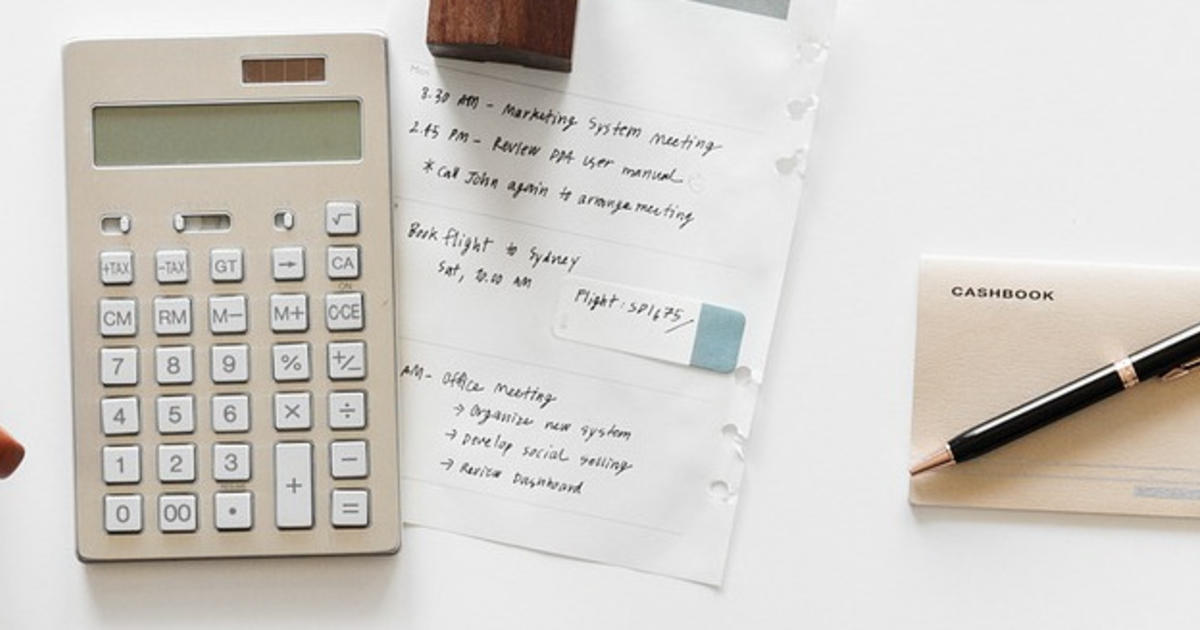 √
+TAX -TAX GT → CA
ON
CM RM M− M+ C·CE
7 8 9 % +/−
4 5 6 × ÷
1 2 3 + −
0 00 • =
Mon
8.30 AM - Marketing System meeting
2.45 PM - Review user manual
*Call John again to arrange meeting
Book flight to Sydney
Sat, 10.00 AM
Flight: SP1675
AM - Office meeting
→ Organize new system
→ Develop social selling
→ Review Dashboard
CASHBOOK